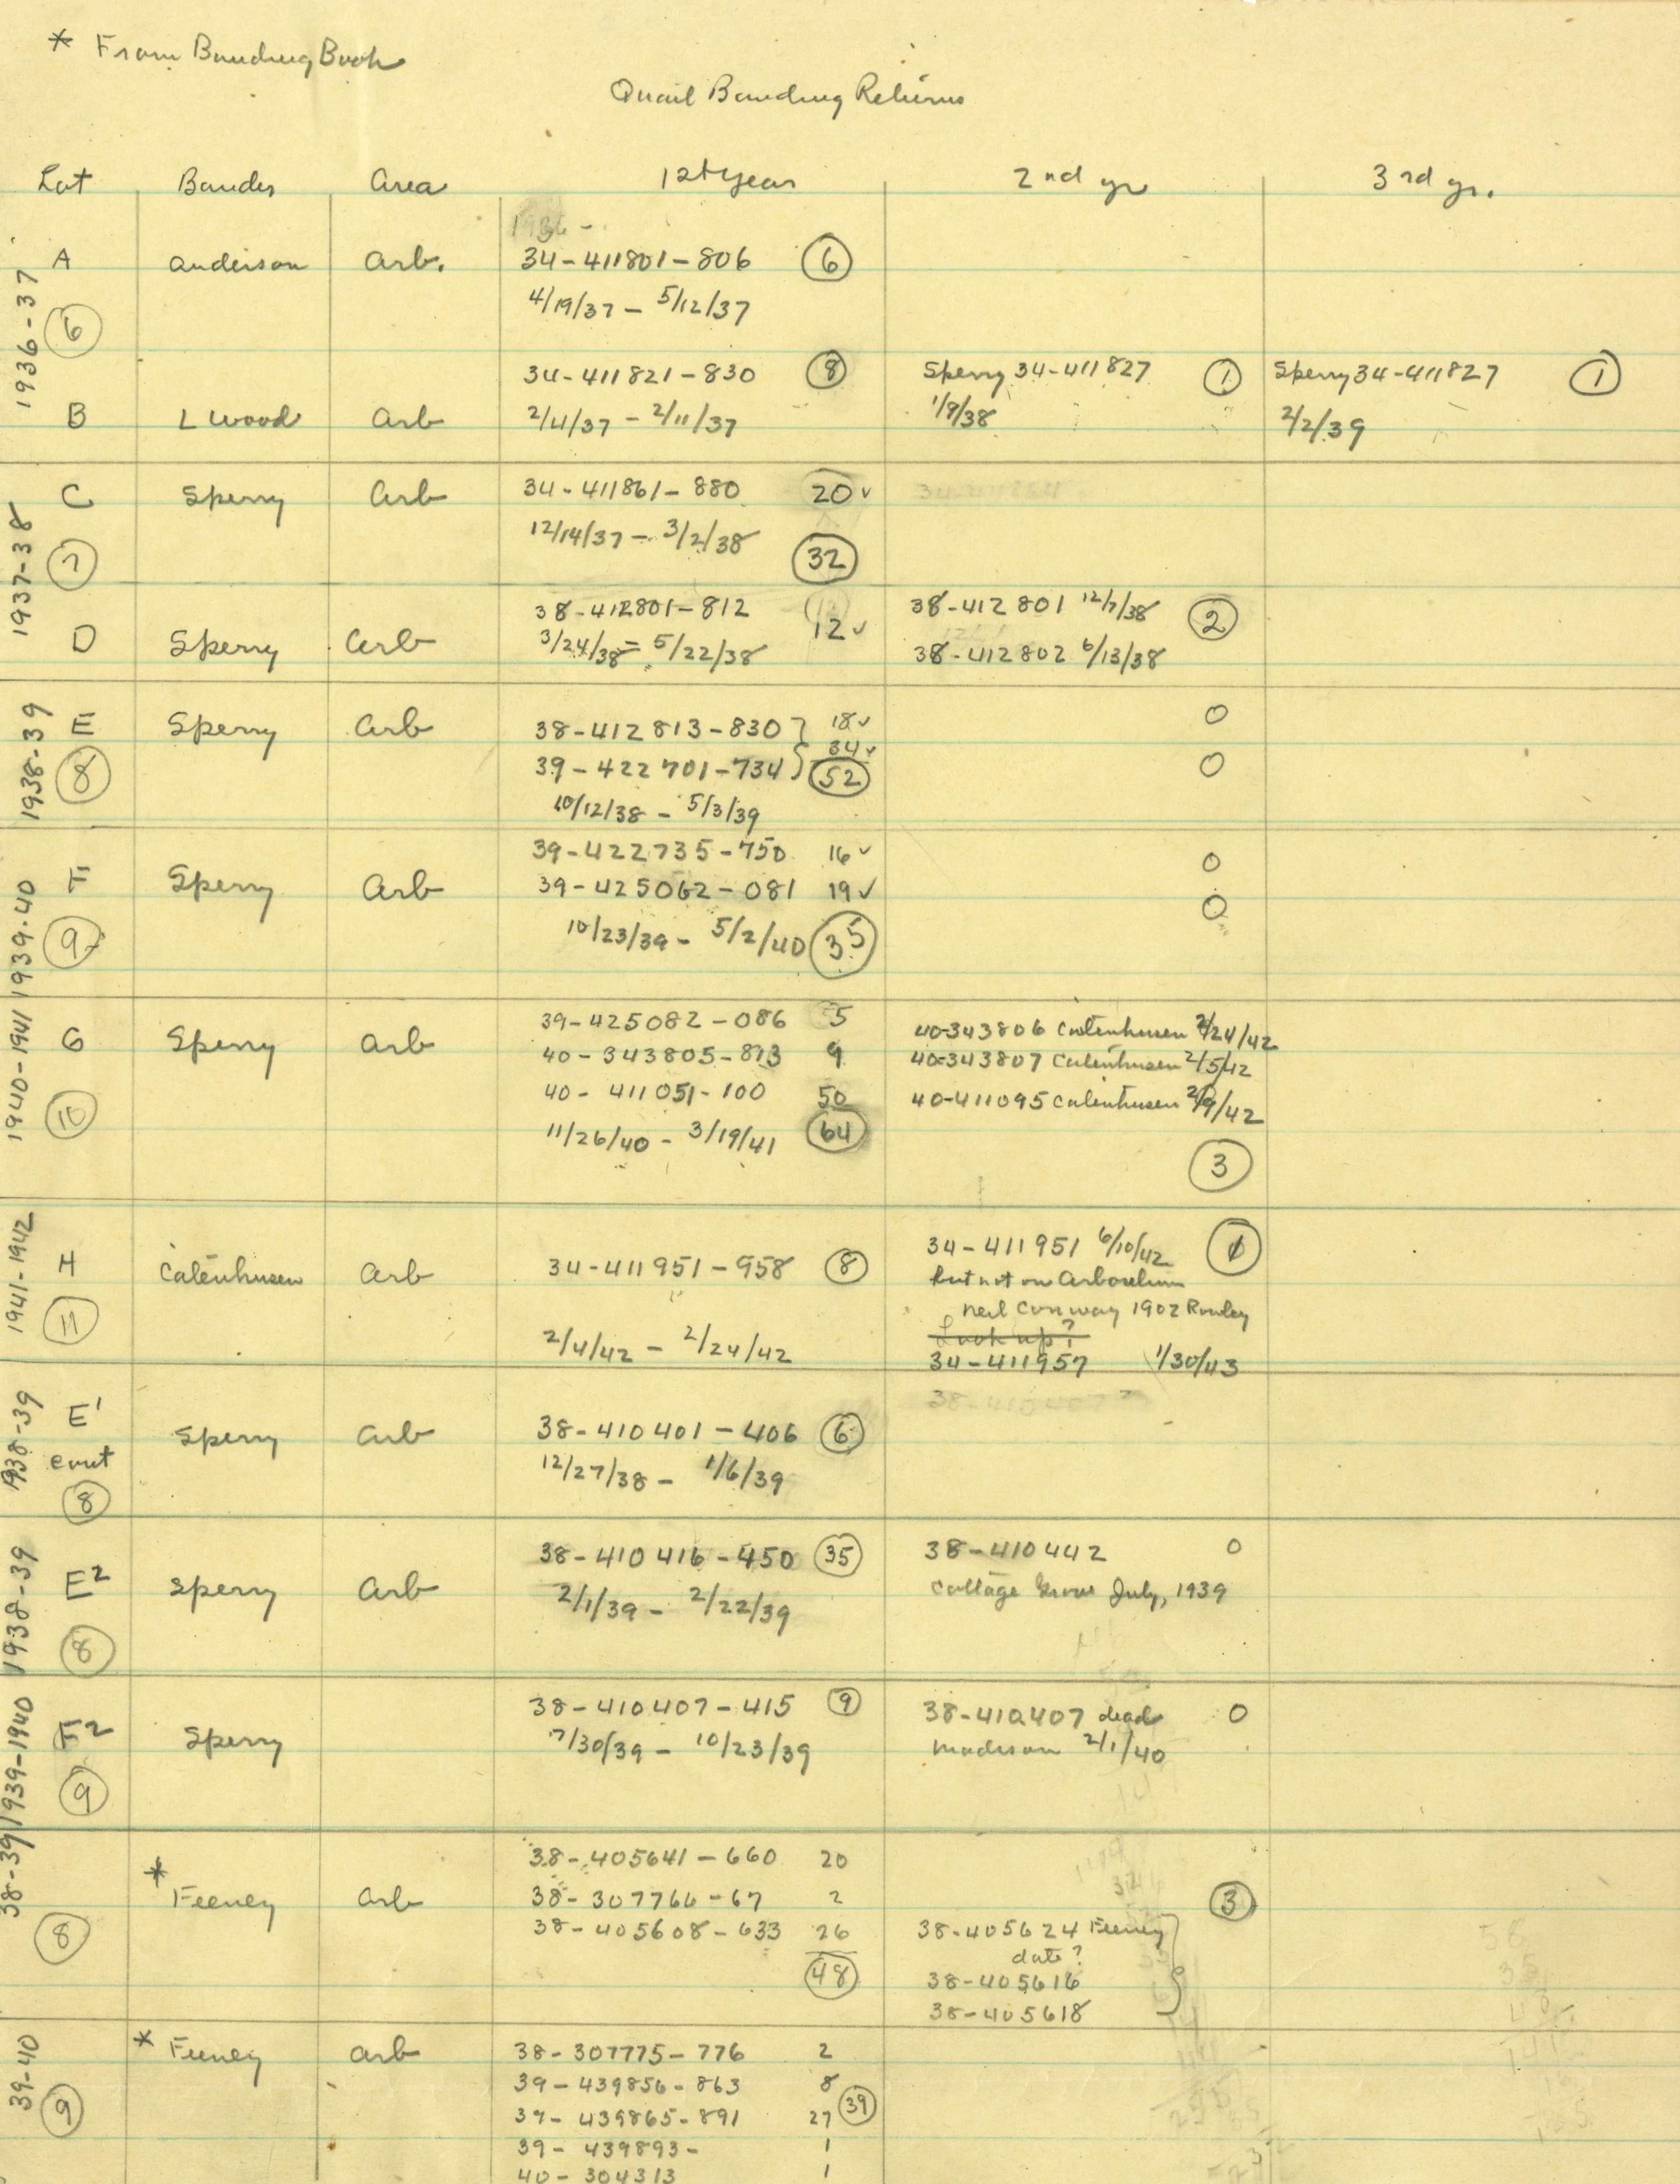 * From Banding Book
Quail Banding Returns
Lot Bander Area 1st year 2nd yr 3rd yr.
1936-37
1936-
A Anderson Arb. 34-411801-806 6
6 4/19/37 - 5/12/37
34-411821-830 8 Sperry 34-411827 1 Sperry 34-411827 1
B L Wood Arb 2/4/37 - 2/11/37 1/8/38 2/2/39
1937-38
C Sperry Arb 34-411861-880 20✓
7 12/14/37 - 3/2/38 32
38-412801-812 38-412801 12/7/38 2
D Sperry Arb 3/24/38 = 5/22/38 12✓ 38-412802 6/13/38
1938-39
E Sperry Arb 38-412813-830 18✓ 0
34✓
8 39-422701-734 52 0
10/12/38 - 5/3/39
1939-40
39-422735-750 16✓ 0
F Sperry Arb 39-425062-081 19✓ 0
9 10/23/39 - 5/2/40 35
1940-1941
39-425082-086 5 40-343806 Catenhusen 2/24/42
G Sperry Arb 40-343805-813 9 40-343807 Catenhusen 2/5/42
10 40-411051-100 50 40-411095 Catenhusen 2/9/42
11/26/40 - 3/19/41 64
3
1941-1942
34-411951 6/10/42 1
H Catenhusen Arb 34-411951-958 8 but not on Arboretum
11 Neil Conway 1902 Rowley
Look up?
2/4/42 - 2/24/42 34-411957 1/30/43
1938-39
E' Sperry Arb 38-410401-406 6
cont 12/27/38 - 1/6/39
8
1938-39
38-410416-450 35 38-410442 0
E2 Sperry Arb 2/1/39 - 2/22/39 Cottage Grove July, 1939
8
1939-1940
38-410407-415 9 38-410407 dead 0
F2 Sperry 7/30/39 - 10/23/39 Madison 2/1/40
9
38-39
38-405641-660 20
* Feeney Arb 38-307766-67 2 3
8 38-405608-633 26 38-405624 Feeney
date?
48 38-405616
38-405618
39-40
* Feeney Arb 38-307775-776 2
39-439856-863 8
9 39-439865-891 27 39
39-439893- 1
40-304313 1